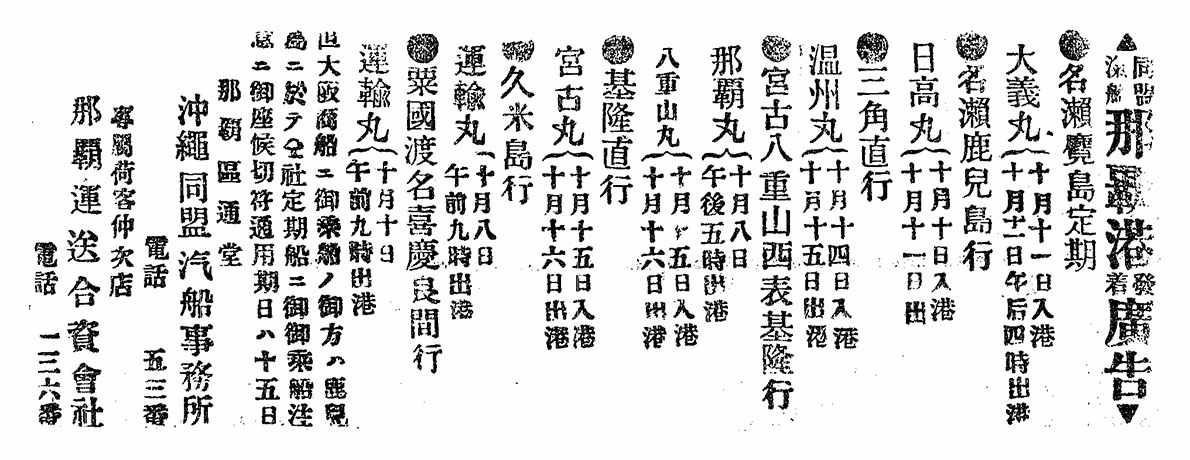 ▲同盟汽船那覇港發着廣告▼
●名瀨覽島定期
大義丸
十月十一日入港
十月十二日午后四時出港
●名瀨鹿兒島行
日高丸
十月十日入港
十月十一日出
●三角直行
溫州丸
十月十四日入港
十月十五日出港
●宮古八重山西表基隆行
那覇丸
十月八日
午後五時出港
八重山丸
十月十五日入港
十月十六日出港
●基隆直行
宮古丸
十月十五日入港
十月十六日出港
●久米島行
運輸丸
十月八日
午前九時出港
●粟國渡名喜慶良間行
運輸丸
十月十日
午前九時出港
但大阪商船ニ御乘船ノ御方ハ鹿兒
島ニ於テ仝社定期船ニ御御乘船注
意ニ御座候切符通用期日ハ十五日
那覇區通堂
沖繩同盟汽船事務所
電話 五三番
專屬荷客仲次店
那覇運送合資會社
電話 一三六番